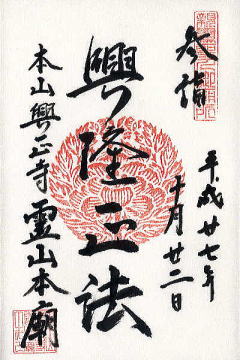 参詣
平成廿七年
十月廿二日
興隆正法
本山興正寺霊山本廟